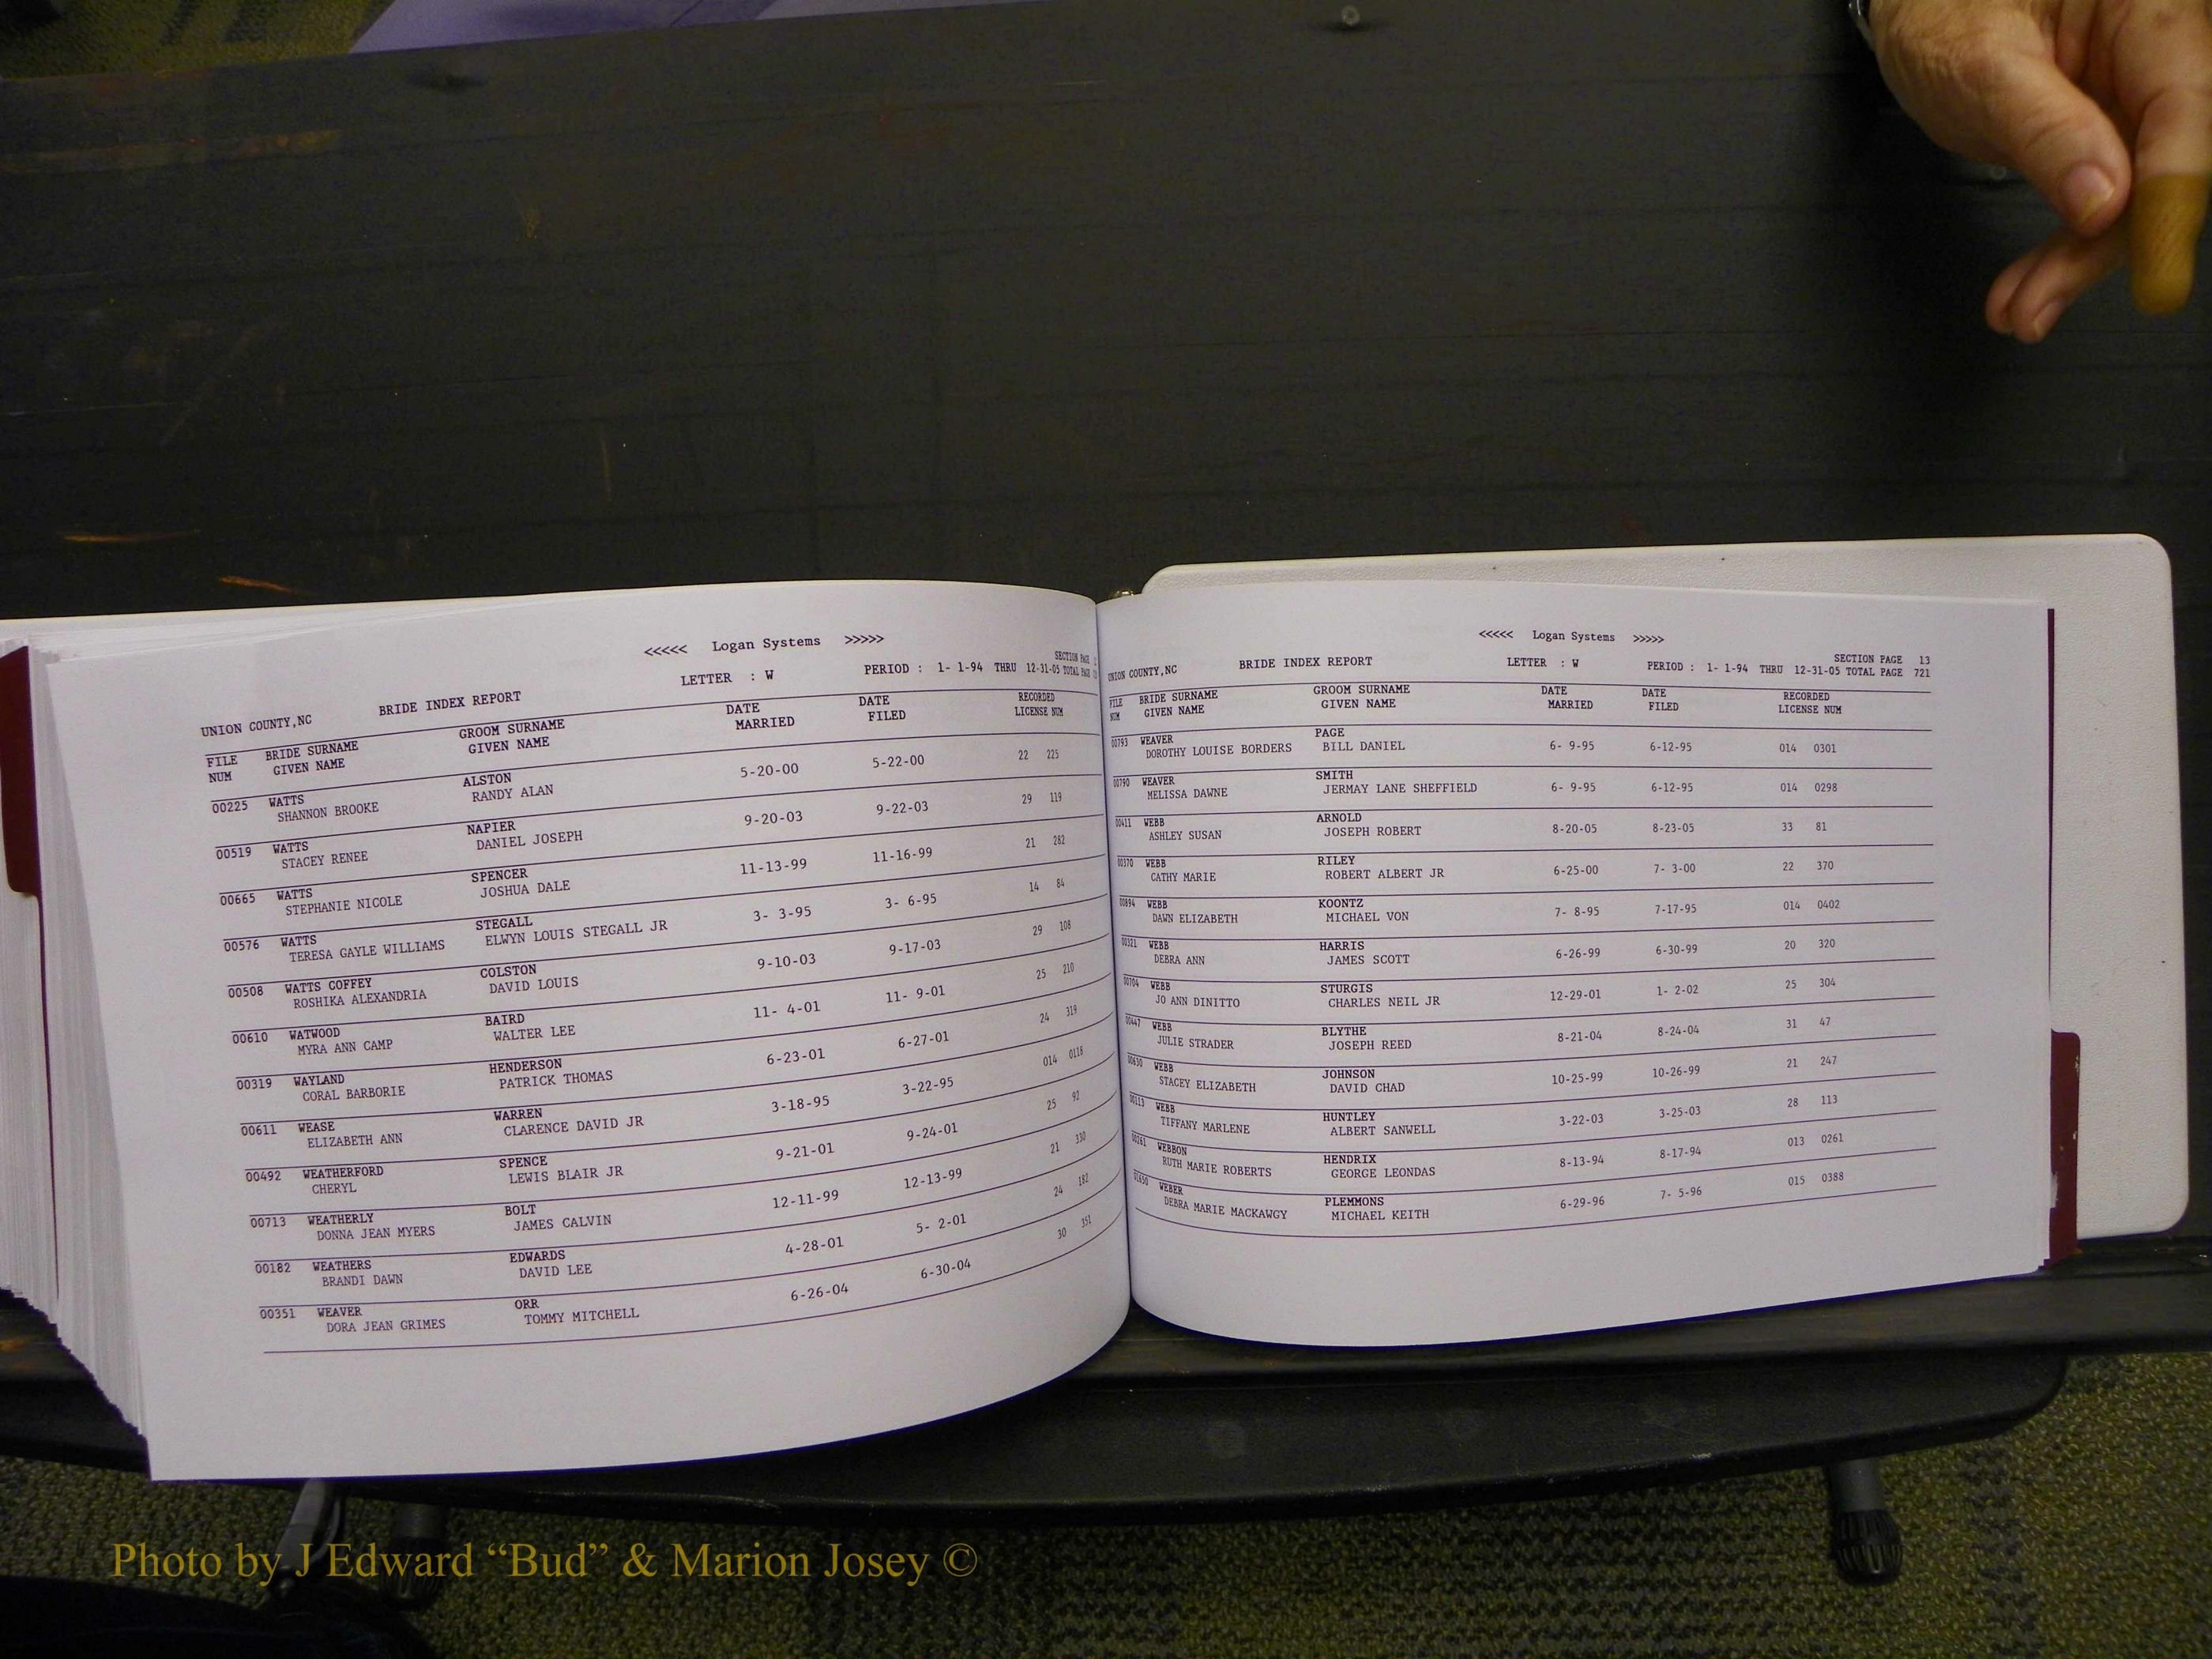 <<<<< Logan Systems >>>>>
SECTION PAGE
UNION COUNTY,NC BRIDE INDEX REPORT LETTER : W PERIOD : 1- 1-94 THRU 12-31-05 TOTAL PAGE
FILE BRIDE SURNAME GROOM SURNAME DATE DATE RECORDED
NUM GIVEN NAME GIVEN NAME MARRIED FILED LICENSE NUM
00225 WATTS ALSTON 5-20-00 5-22-00 22 225
SHANNON BROOKE RANDY ALAN
00519 WATTS NAPIER 9-20-03 9-22-03 29 119
STACEY RENEE DANIEL JOSEPH
00665 WATTS SPENCER 11-13-99 11-16-99 21 282
STEPHANIE NICOLE JOSHUA DALE
00576 WATTS STEGALL 3- 3-95 3- 6-95 14 84
TERESA GAYLE WILLIAMS ELWYN LOUIS STEGALL JR
00508 WATTS COFFEY COLSTON 9-10-03 9-17-03 29 108
ROSHIKA ALEXANDRIA DAVID LOUIS
00610 WATWOOD BAIRD 11- 4-01 11- 9-01 25 210
MYRA ANN CAMP WALTER LEE
00319 WAYLAND HENDERSON 6-23-01 6-27-01 24 319
CORAL BARBORIE PATRICK THOMAS
00611 WEASE WARREN 3-18-95 3-22-95 014 0118
ELIZABETH ANN CLARENCE DAVID JR
00492 WEATHERFORD SPENCE 9-21-01 9-24-01 25 92
CHERYL LEWIS BLAIR JR
00713 WEATHERLY BOLT 12-11-99 12-13-99 21 330
DONNA JEAN MYERS JAMES CALVIN
00182 WEATHERS EDWARDS 4-28-01 5- 2-01 24 182
BRANDI DAWN DAVID LEE
00351 WEAVER ORR 6-26-04 6-30-04 30 351
DORA JEAN GRIMES TOMMY MITCHELL
<<<<< Logan Systems >>>>>
SECTION PAGE 13
UNION COUNTY,NC BRIDE INDEX REPORT LETTER : W PERIOD : 1- 1-94 THRU 12-31-05 TOTAL PAGE 721
FILE BRIDE SURNAME GROOM SURNAME DATE DATE RECORDED
NUM GIVEN NAME GIVEN NAME MARRIED FILED LICENSE NUM
00793 WEAVER PAGE 6- 9-95 6-12-95 014 0301
DOROTHY LOUISE BORDERS BILL DANIEL
00790 WEAVER SMITH 6- 9-95 6-12-95 014 0298
MELISSA DAWNE JERMAY LANE SHEFFIELD
00411 WEBB ARNOLD 8-20-05 8-23-05 33 81
ASHLEY SUSAN JOSEPH ROBERT
00370 WEBB RILEY 6-25-00 7- 3-00 22 370
CATHY MARIE ROBERT ALBERT JR
00894 WEBB KOONTZ 7- 8-95 7-17-95 014 0402
DAWN ELIZABETH MICHAEL VON
00321 WEBB HARRIS 6-26-99 6-30-99 20 320
DEBRA ANN JAMES SCOTT
00704 WEBB STURGIS 12-29-01 1- 2-02 25 304
JO ANN DINITTO CHARLES NEIL JR
00447 WEBB BLYTHE 8-21-04 8-24-04 31 47
JULIE STRADER JOSEPH REED
00630 WEBB JOHNSON 10-25-99 10-26-99 21 247
STACEY ELIZABETH DAVID CHAD
00113 WEBB HUNTLEY 3-22-03 3-25-03 28 113
TIFFANY MARLENE ALBERT SANWELL
00261 WEBBON HENDRIX 8-13-94 8-17-94 013 0261
RUTH MARIE ROBERTS GEORGE LEONDAS
01650 WEBER PLEMMONS 6-29-96 7- 5-96 015 0388
DEBRA MARIE MACKAWGY MICHAEL KEITH
Photo by J Edward “Bud” & Marion Josey ©